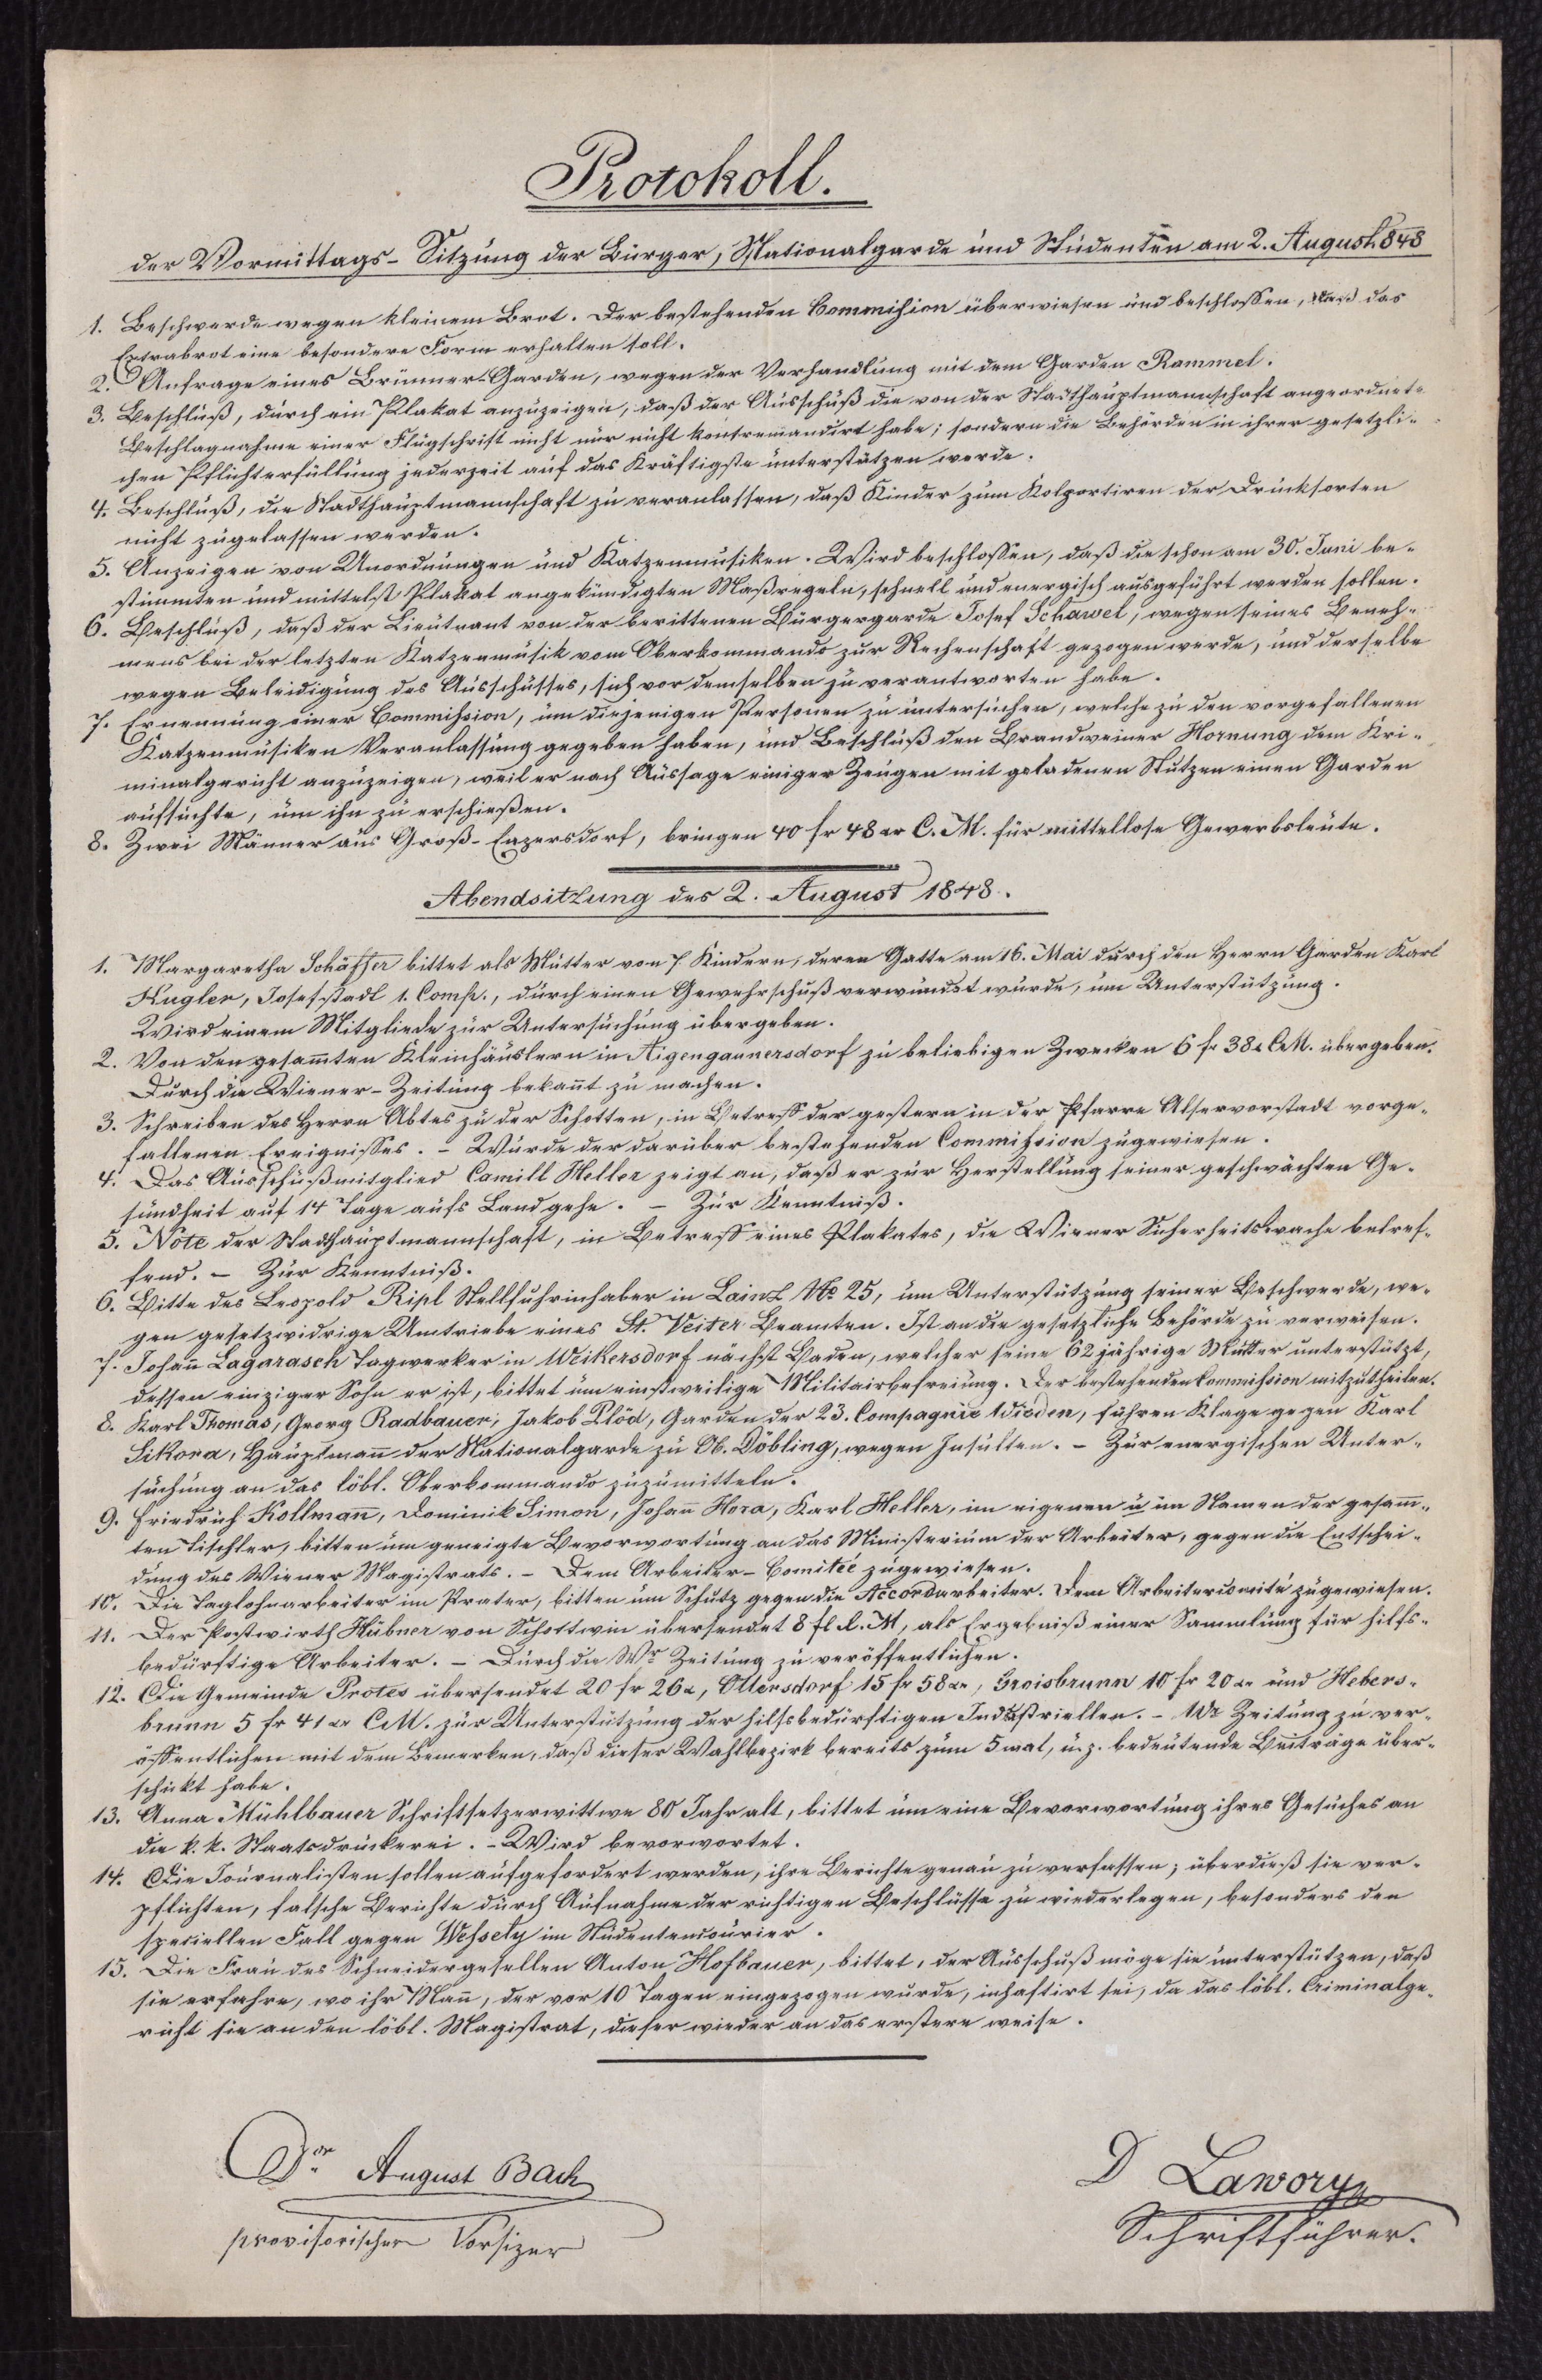 Protokoll.
der Vormittags-Sitzung der Bürger, Nationalgarde und Studenten am 2. August 848
1. Beschwerde wegen kleinem Brot. Der bestehenden Commißion überwiesen und beschlossen, daß das
Extrabrot eine besondere Form erhalten soll.
2. Anfrage eines Brünner-Garden, wegen der Verhandlung mit dem Garden Rammel.
3. Beschluß, durch ein Plakat anzuzeigen, daß der Ausschuß die von der Stadthauptmannschaft angeordnete
Beschlagnahme einer Flugschrift nicht nur nicht kontremandirt habe; sondern die Behörden in ihrer gesetzli-
chen Pflichterfüllung jederzeit auf das Kräftigste unterstützen werde.
4. Beschluß, die Stadthauptmannschaft zu veranlassen, daß Kinder zum Kolportiren der Drucksorten
nicht zugelassen werden.
5. Anzeigen von Unordnungen und Katzenmusiken. Wird beschlossen, daß die schon am 30. Juni be-
stimmten und mittelst Plakat angekündigten Maßregeln, schnell und energisch ausgeführt werden sollen.
6. Beschluß, daß der Lieutnant von der berittenen Bürgergarde Josef Schawel, wegen seines Beneh-
mens bei der letzten Katzenmusik vom Oberkommando zur Rechenschaft gezogen werde, und derselbe
wegen Beleidigung des Ausschusses, sich vor demselben zu verantworten habe.
7. Ernennung einer Commißsion, um diejenigen Personen zu untersuchen, welche zu den vorgefallenen
Katzenmusiken Veranlassung gegeben haben, und Beschluß den Brandweiner Hornung dem Kri-
minalgericht anzuzeigen, weil er nach Aussage einiger Zeugen mit geladenen Stutzen einen Garden
aufsuchte, um ihn zu erschießen.
8. Zwei Männer aus Groß-Enzersdorf, bringen 40 fr 48 xr C. M. für mittellose Gewerbsleute.
Abendsitzung des 2. August 1848.
1. Margaretha Schäffer bittet als Mutter von 7 Kindern, deren Gatte am 16. Mai durch den Herrn Garden Karl
Kugler, Josefstadt 1. Comp., durch einen Gewehrschuß verwundet wurde, um Unterstützung.
Wird einem Mitgliede zur Untersuchung übergeben.
2. Von den gesam̄ten Kleinhäuslern in Aigengaunersdorf zu beliebigen Zwecken 6 fr 38 x CM. übergeben.
Durch die Wiener-Zeitung bekan̄t zu machen.
3. Schreiben des Herrn Abtes zu der Schotten, in Betreff der gestern in der Pfarre Alservorstadt vorge-
fallenen Ereignisses. - Wurde der darüber bestehenden Commißsion zugewiesen.
4. Das Ausschußmitglied Camill Heller zeigt an, daß er zur Herstellung seiner geschwächten Ge-
sundheit auf 14 Tage aufs Land gehe. - Zur Kenntniß.
5. Note der Stadthauptmannschaft, in Betreff eines Plakates, die Wiener Sicherheitswache betref-
fend. - Zur Kenntniß.
6. Bitte des Leopold Ripl Stellfuhrinhaber in Lainz No 25, um Unterstützung seiner Beschwerde, we-
gen gesetzwidrige Umtriebe eines St. Veiter Beamten. Ist an die gesetzliche Behörde zu verweisen.
7. Johan̄ Lagarasch Tagwerker in Weikersdorf nächst Baden, welcher seine 62 jährige Mutter unterstützt,
dessen einziger Sohn er ist, bittet um einstweilige Militairbefreiung. Der bestehenden Kommißsion mitzutheilen.
8. Karl Thomas, Georg Radbauer, Jakob Plöd, Garden der 23. Compagnie Wieden, führen Klage gegen Karl
Sikora, Hauptman̄ der Nationalgarde zu Ob. Döbling, wegen Insulten. - Zur energischen Unter-
suchung an das löbl. Oberkommando zuzumitteln.
9. Friedrich Kollman̄, Dominik Simon, Johan̄ Hora, Karl Heller, im eigenen u im Namen der gesam̄-
ten Tischler, bitten um geneigte Bevorwortung an das Ministerium der Arbeiter, gegen die Entschei-
dung des Wiener Magistrats. - Dem Arbeiter-Comitée zugewiesen.
10. Die Taglohnarbeiter im Prater, bitten um Schutz gegen die Accordarbeiter. Dem Arbeitercomité zugewiesen.
11. Der Postwirth Hübner von Schottwin übersendet 8 fl C. M, als Ergebniß einer Sammlung für hilfs-
bedürftige Arbeiter. - Durch die Wr Zeitung zu veröffentlichen.
12. Die Gemeinde Protes übersendet 20 fr 26 x, Ollersdorf 15 fr 58 xr, Groisbrunn 10 fr 20 xr und Hebers-
brunn 5 fr 41 xr CM. zur Unterstützung der hilfsbedürftigen Industriellen. - Wr Zeitung zu ver-
öffentlichen mit dem Bemerken, daß dieser Wahlbezirk bereits zum 5 mal, u. z. bedeutende Beiträge über-
schickt habe.
13. Anna Mühlbauer Schriftsetzerwittwe 80 Jahr alt, bittet um eine Bevorwortung ihres Gesuches an
die k. k. Staatsdruckerei. - Wird bevorwortet.
14. Die Journalisten sollen aufgefordert werden, ihre Berichte genau zu verfassen; überdieß sie ver-
pflichten, falsche Berichte durch Aufnahme der richtigen Beschlüsse zu wiederlegen, besonders den
speciellen Fall gegen Weßsely im Studentencourier.
15. Die Frau des Schneidergesellen Anton Hofbauer, bittet, der Ausschuß möge sie unterstützen, daß
sie erfahre, wo ihr Man̄, der vor 10 Tagen eingezogen wurde, inhaftirt sei, da das löbl. Criminalge-
richt sie an den löbl. Magistrat, dieser wieder an das erstere weise.
Dor August Bach
provisorischer Vorsizer
D Lawory
Schriftführer.